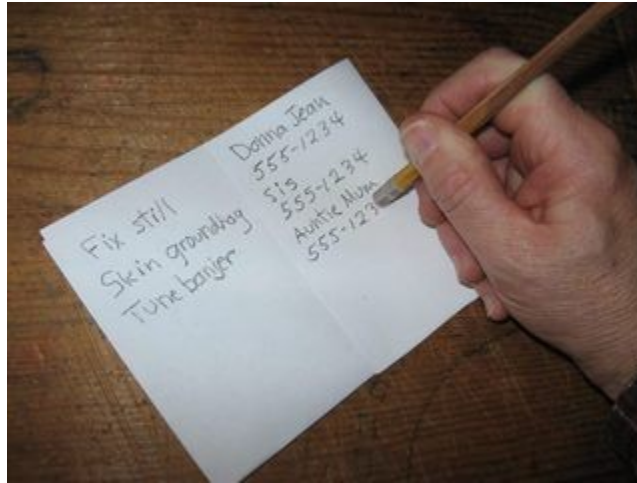 Fix still
Skin groundhog
Tune banjer
Donna Jean
555-1234
Sis
555-1234
Auntie Mum
555-123